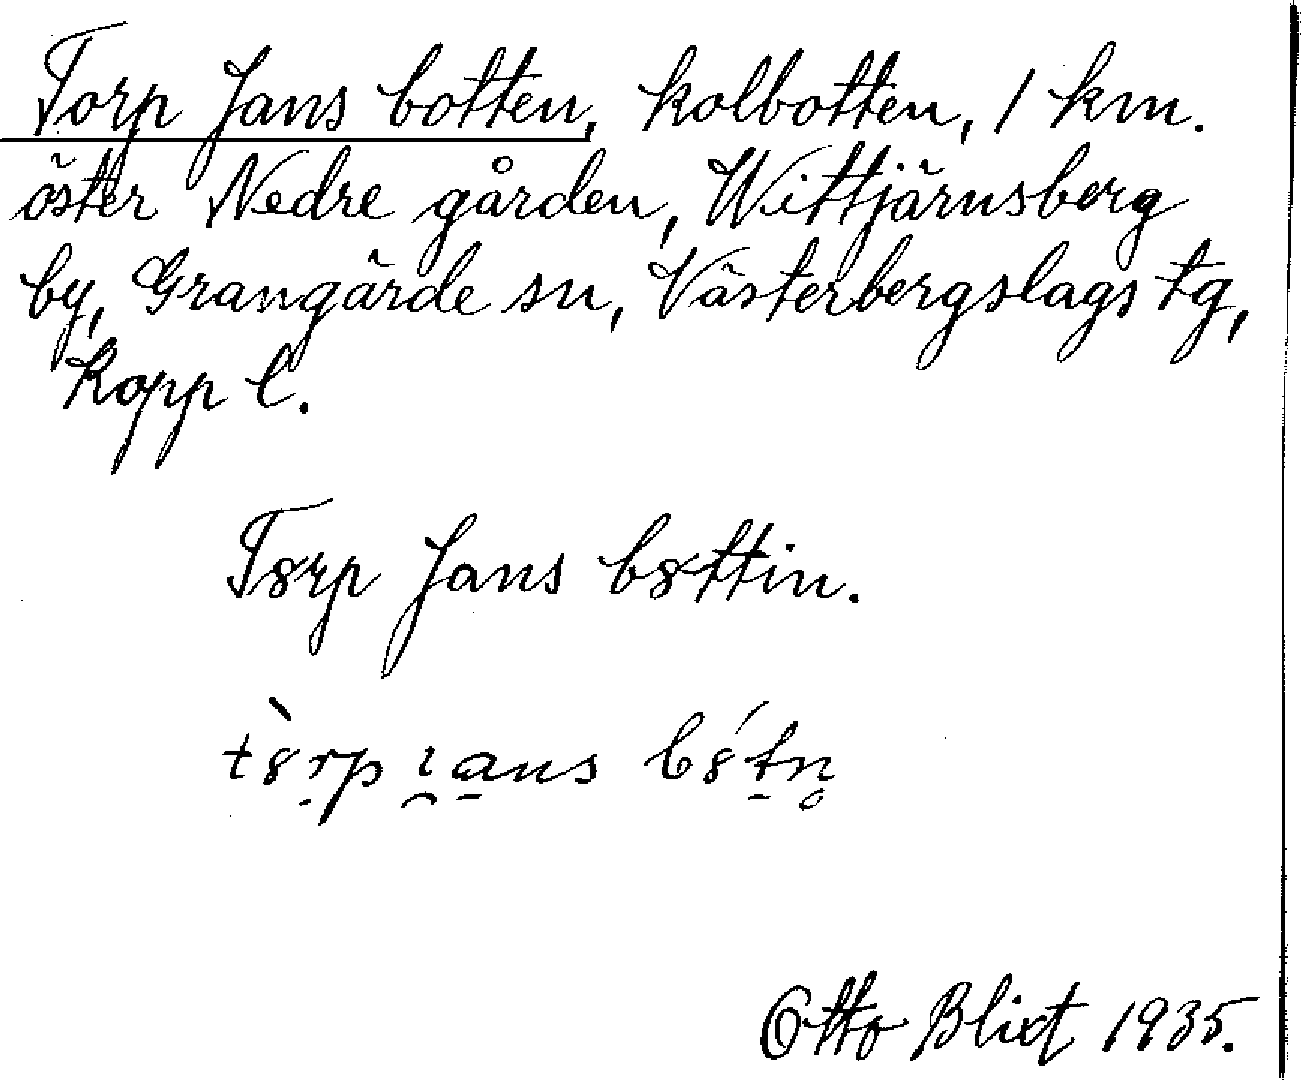 Torp Jans botten, kolbotten, 1 km.
öster Nedre gården, Wittjärnsberg
by, Grangärde sn, Västerbergslags tg,
Kopp l.
T8rp Jans b8ttin.
t8̀r̠p ı̯a̠ns b8́t̠n̥
Otto Blixt 1935.